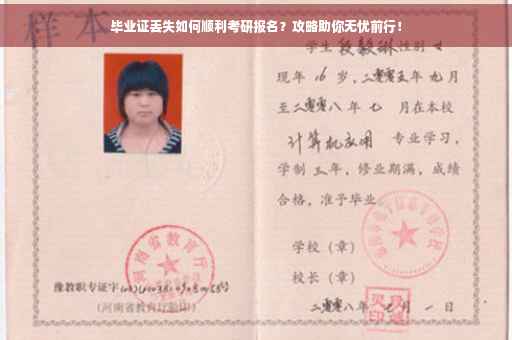 毕业证丢失如何顺利考研报名？攻略助你无忧前行！
样本
学生段毅琳性别女
现年16岁，二零零五年九月
至二零零八年七月在本校
计算机应用 专业学习，
学制三年，修业期满，成绩
合格，准予毕业
学校（章）
校长（章）
二零零八年 月一日
河南省教育厅
豫教职专证字
（河南省教育厅验印）